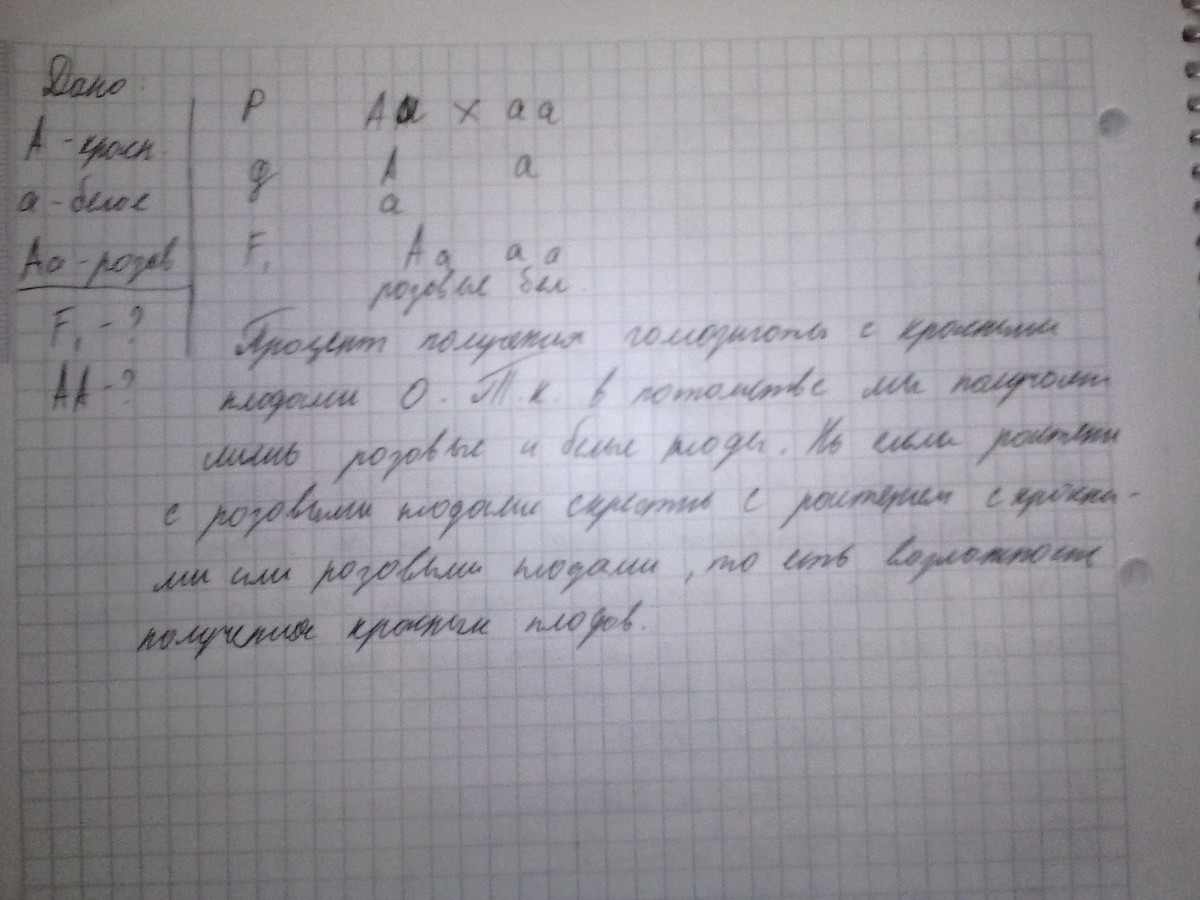 Дано:
А - красн.
а - белое
Аа - розов
F₁ - ?
АА - ?
P Аа × аа
g А а
а
F₁ Аа аа
розовые бел.
Процент получения гомозиготы с красными
плодами 0. Т.к. в потомстве мы получаем
лишь розовые и белые плоды. Но если растени
с розовыми плодами скрестить с растением с красны-
ми или розовыми плодами, то есть возможность
получения красных плодов.